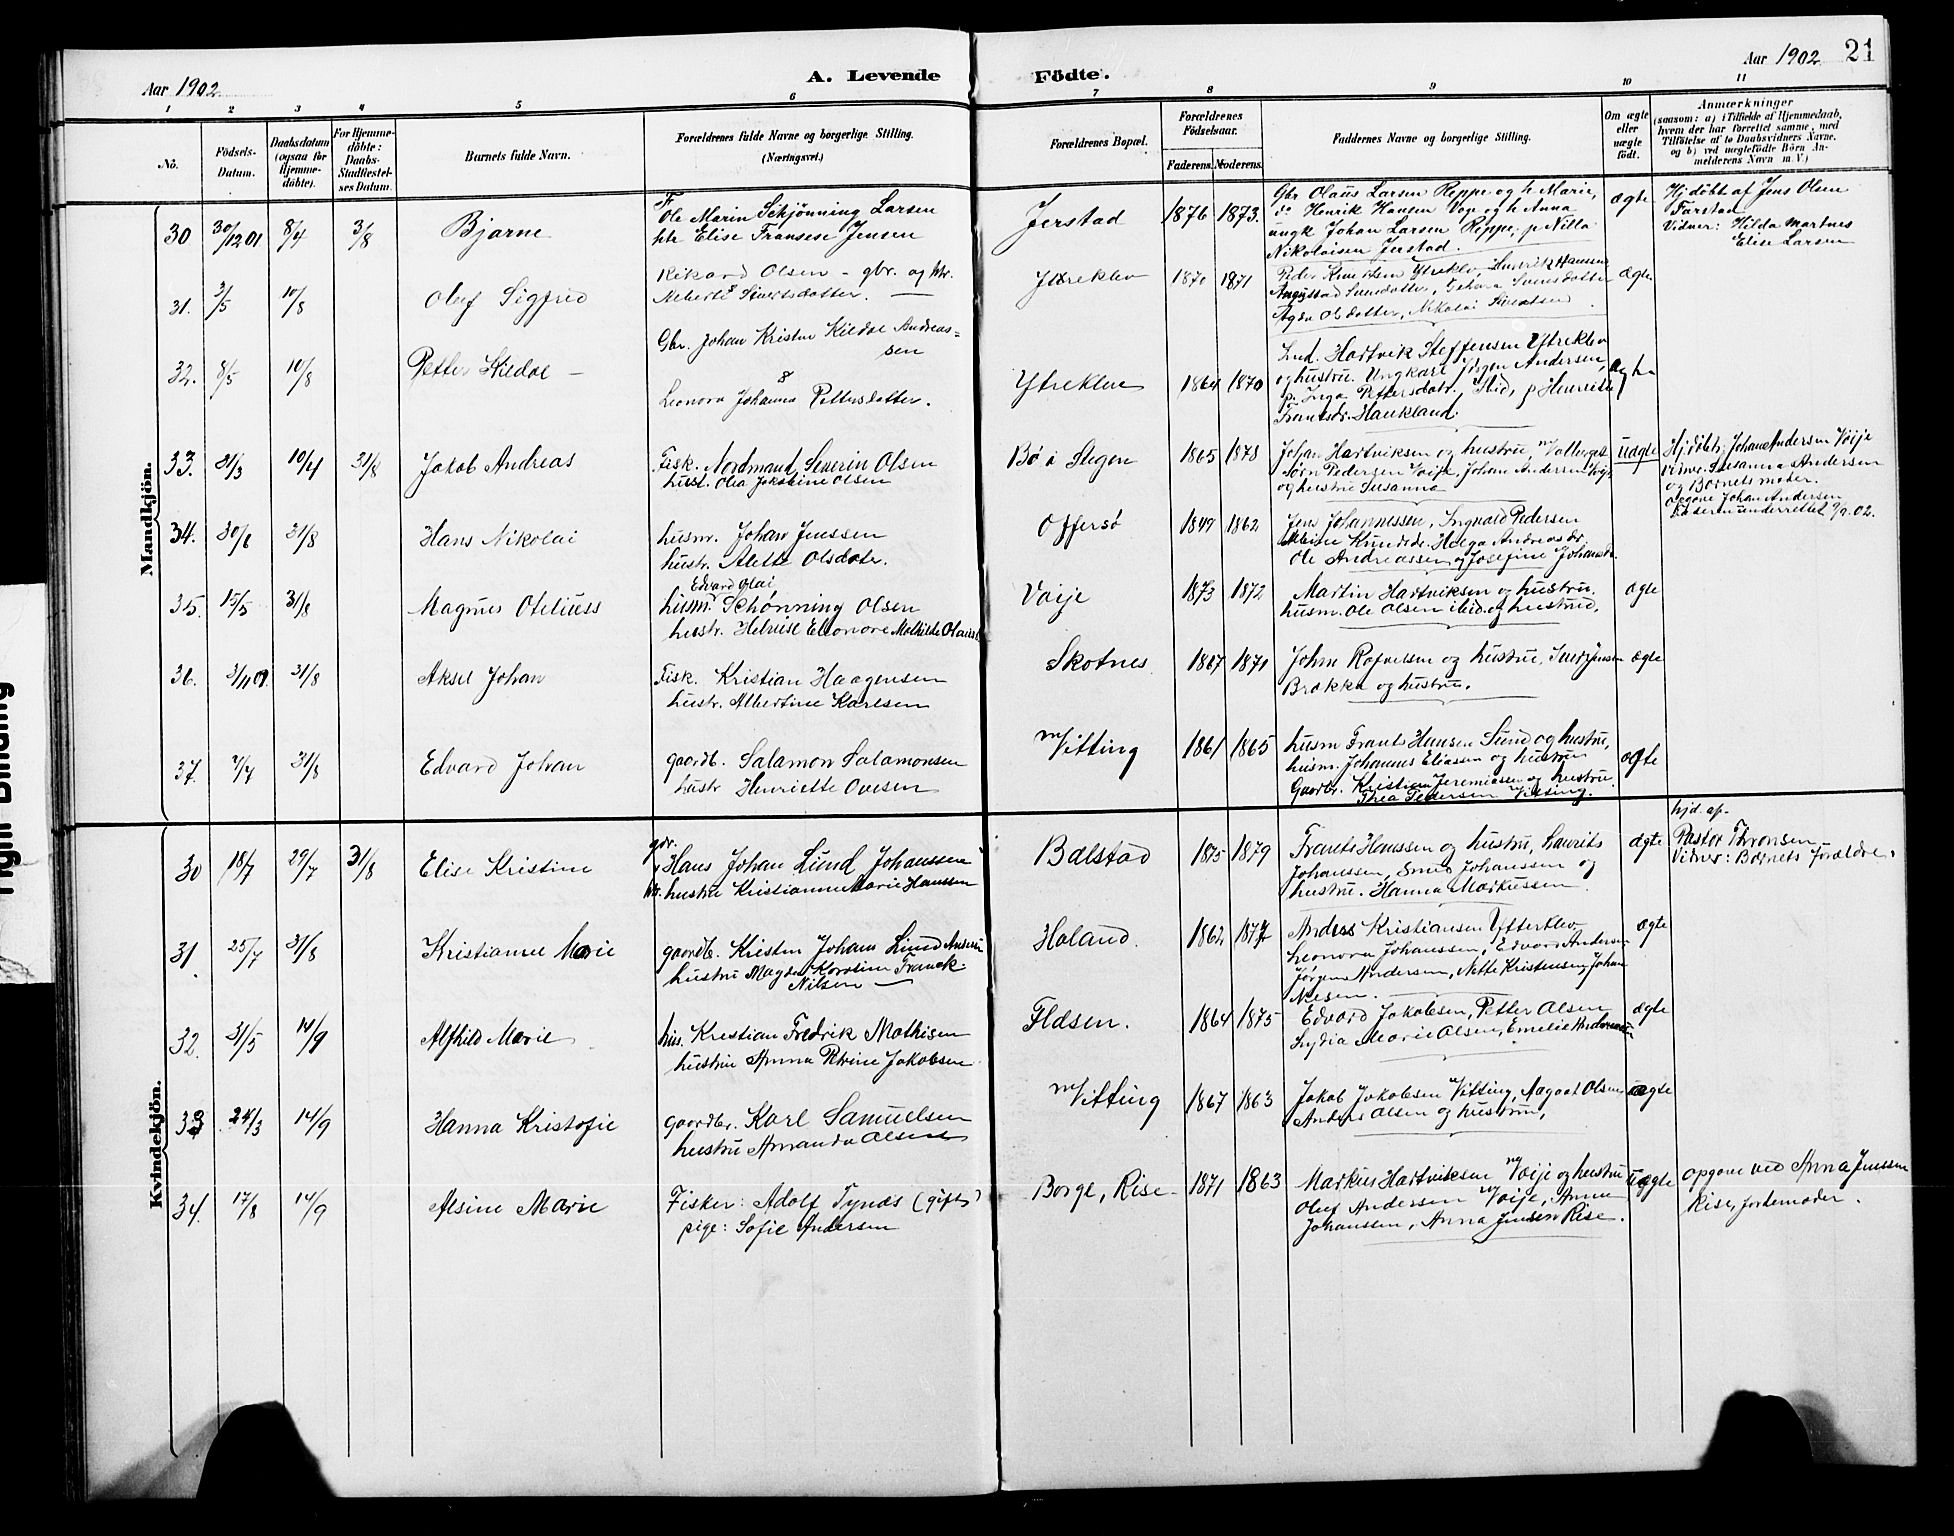 Aar 1902.
A. Levende
1 2 3 4 5 6
No.
Födsels-
Datum.
Daabsdatum
(ogsaa for
Hjemme-
döbte).
For Hjemme-
döbte:
Daabs-
Stadfæstel-
ses Datum.
Barnets fulde Navn.
Forældrenes fulde Navne og borgerlige Stilling.
(Næringsvei.)
Mandkjön.
30 30/12 01 8/4 3/8 Bjarne
F
Ole Marin Schjønning Larsen
htr Elise Fransese Jensen
31. 3/5 10/8 Oluf Sigfred
Rikard Olsen - gbr. og htr.
Sivertsdatter.
32. 8/5 10/8 Petter Kildal
Gbr. Johan Kristen Kildal Andreas=
sen
&
Leonora Johanna Pettersdatter.
33. 31/3 10/4 31/8 Jakob Andreas
Fisk. Nordmand Severin Olsen
hust. Olea Jakobine Olsen
34. 30/6 31/8 Hans Nikolai
husm. Johan Jenssen
hustr. Alette Olsdatr.
35. 15/5 31/8 Magnus Oteliuss
Edvard Olai
husm. Schønning Olsen
hustr. Helvise Elionore Mathilde
36. 3/11 01. 31/8 Aksel Johan
Fisk. Kristian Haagensen
hustr. Albertine Karlsen
37. 7/4 31/8 Edvard Johan
gaardb. Salamon Salamonsen
hustr Henriette Ovesen
Kvindekjön.
30 18/7 29/7 31/8 Elise Kristine
gbr.
Hans Johan Lund Johanssen
hustru Kristianne Marie Hanssen
31. 25/7 31/8 Kristianne Marie
gaardb. Kristen Johan Lind
hustru Magda Karoline Franck.
Nilsen
32. 31/5 14/9 Alfhild Marie
hus. Krestian Fredrik Mathisen
hustru Anna Petrine Jakobsen
33 24/3 14/9 Hanna Kristofie
gaardbr. Karl Samuelsen
hustru Amanda Olsen
34. 17/8 14/9 Alsine Marie
Fisker: Adolf Tynæs (gift)
pige: Sofie Andersen
Födte.
Aar 1902. 21
7 8 9 10 11
Forældrenes Bopæl.
Forældrenes
Födselsaar.
Faderens. Moderens.
Faddernes Navne og borgerlige Stilling.
Om ægte
eller
uægte
födt.
Anmærkninger
(saasom: a) i Tilfælde af Hjemmedaab,
hvem der har forrettet samme, med
Tilföielse af to Daabsvidners Navne,
og b) ved uægtefödte Börn An-
melderens Navn m. V.)
Jerstad 1876 1873.
Gbr Olaus Larsen Reppe og h Marie,
do Henrik Hansen Vop og h Anna
ungk Johan Larsen Reppe, p Nilla
Nikolaisen Jerstad.
ægte
Hjdøbt af Jens Olsen
Farstad
Vidner: Hilda Martnes
Elise Larsen
Ytreklev 1870 1871
Peder Knutsen Ytreklev, Henrik Hansen
Olsdatter, Nikolai Sivertsen
ægte
Ytreklev 1864 1870
Ind. Hartvik Steffensen Ytreklev
og hustru. Ungkarl Jørgen Andersen,
p. Inga Pettersdatr. Ibid, p Henriette
Frantsdr. Haukland.
ægte
Bø i Stegen 1865 1878
Johan Hartviksen og hustru,
Søren Pedersen Voije, Johan Andersen Voije
og hustru Susanna
uægte
Hjdøbt: Johan Andersen Voije
vidner. Susanna Andersen
og Barnets moder.
Opgave Johan Andersen
underrettet 9/9 02.
Offersø 1849 1862
Jens Johannessen, Ingvald Pedersen
Knudsdr. Helga Andreasdr.
Ole Andreassen og Josefine Johansdr.
Voije 1873 1872
Martin Hartviksen og hustru.
husm. Ole Olsen ibid. og hustru,
ægte
Skotnes 1867 1871
Johan Rafaelsen og hustru,
Brakka og hustru.
ægte
Vitting 1861 1865
husm Frants Hansen Sund og hustru,
husm. Johannes Eliasen og hustru
Gaardbr. Kristian Jeremiassen og hustru
Thea Pedersen Vitting.
ægte
Balstad 1875 1879
Frants Hanssen og hustru, Laurits
Johanssen, Smed Johanssen og
hustru. Hanna Markussen
ægte
hjd. af
Pastor Thronsen
Vidner: Barnets Forældre.
Haland. 1862 1877
Anders Kristiansen Ytterklev
Leonora Johanssen, Edvard Andersen
Jørgen Andersen, Nette Kristensen, Johan
ægte
Flæsen. 1864 1875
Edvard Jakobsen, Petter Olsen
Lydia Marie Olsen, Emelie Andersen
ægte
Vitting 1867 1863
Jakob Jakobsen Vitting, Aagaat Olsen
Anders Olsen og hustru,
ægte
Borge, Rise 1871 1863
Markus Hartviksen Voije og hustru
Oluf Andersen Voije, Anna
Johanssen, Anna Jensen Rise.
uægte
Opgave ved Anna Jenssen
Rise, jordemoder.
Tight Binding